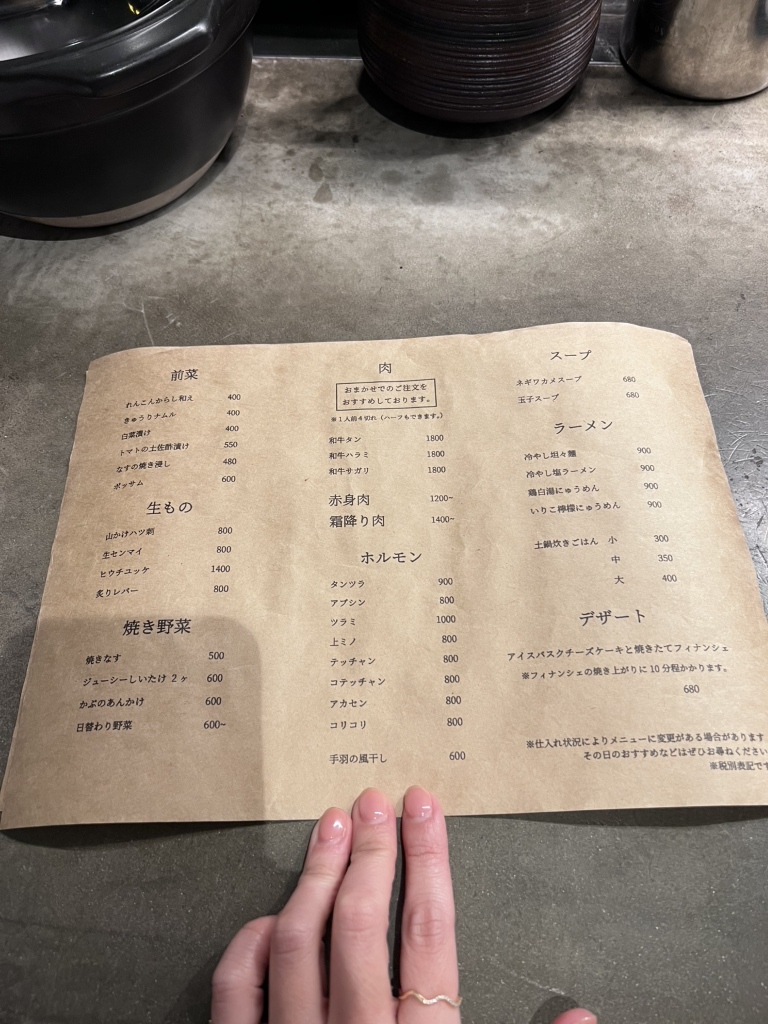 前菜
れんこんからし和え 400
きゅうりナムル 400
白菜漬け 400
トマトの土佐酢漬け 550
なすの焼き浸し 480
ポッサム 600
生もの
山かけハツ刺 800
生センマイ 800
ヒウチユッケ 1400
炙りレバー 800
焼き野菜
焼きなす 500
ジューシーしいたけ 2ヶ 600
かぶのあんかけ 600
日替わり野菜 600~
肉
おまかせでのご注文を
おすすめしております。
※1人前4切れ（ハーフもできます。）
和牛タン 1800
和牛ハラミ 1800
和牛サガリ 1800
赤身肉 1200~
霜降り肉 1400~
ホルモン
タンツラ 900
アブシン 800
ツラミ 1000
上ミノ 800
テッチャン 800
コテッチャン 800
アカセン 800
コリコリ 800
手羽の風干し 600
スープ
ネギワカメスープ 680
玉子スープ 680
ラーメン
冷やし坦々麺 900
冷やし塩ラーメン 900
鶏白湯にゅうめん 900
いりこ檸檬にゅうめん 900
土鍋炊きごはん 小 300
中 350
大 400
デザート
アイスバスクチーズケーキと焼きたてフィナンシェ
※フィナンシェの焼き上がりに10分程かかります。
680
※仕入れ状況によりメニューに変更がある場合があります
その日のおすすめなどはぜひお尋ねください
※税別表記です